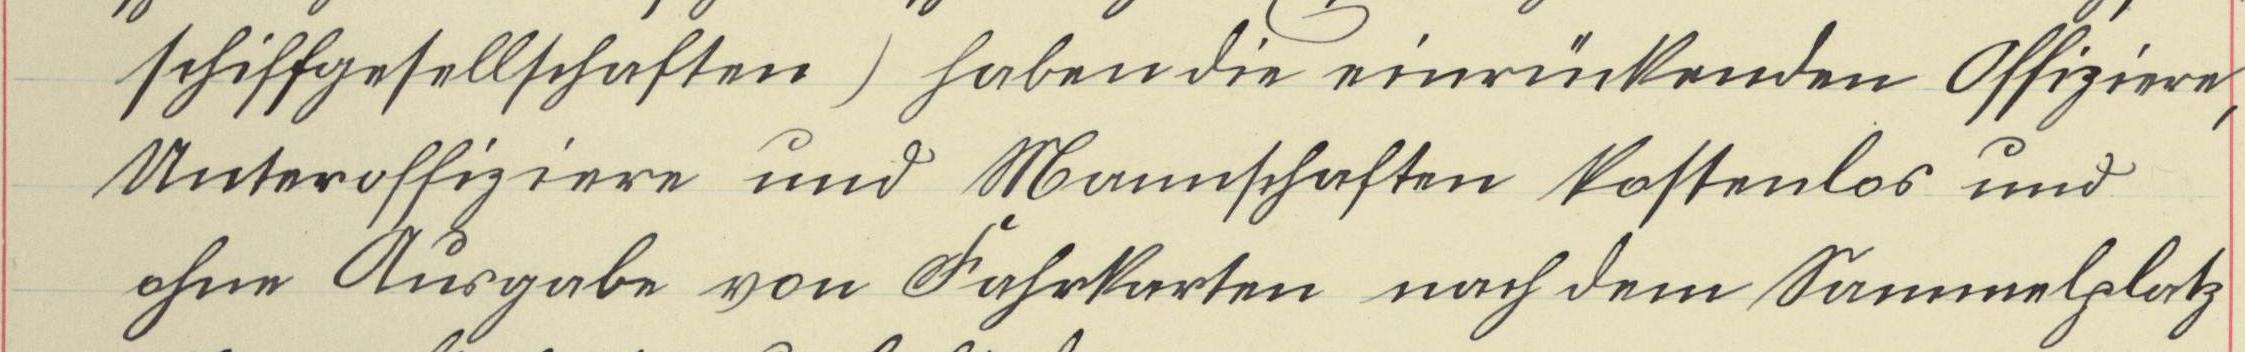 schiffgesellschaften) haben die einrückenden Offiziere,
Unteroffiziere und Mannschaften kostenlos und
ohne Ausgabe von Fahrkarten nach dem Sammelplatz